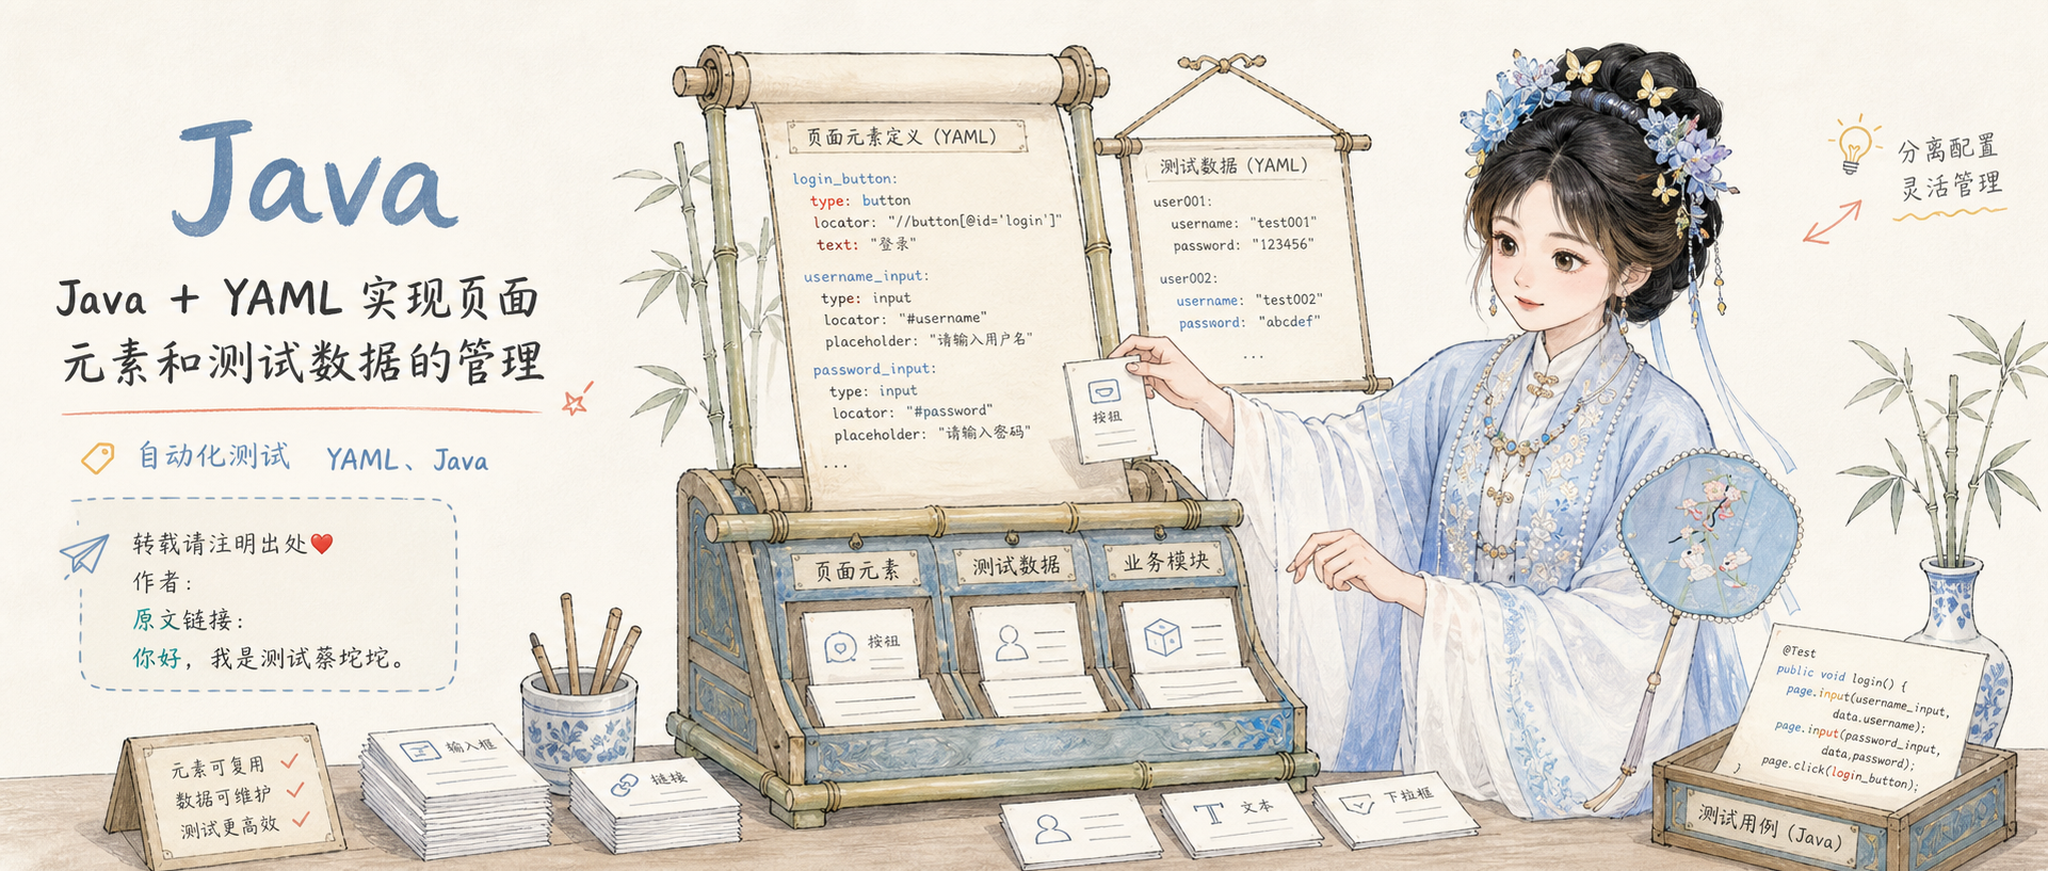 Java
Java + YAML 实现页面
元素和测试数据的管理
自动化测试 YAML、Java
转载请注明出处❤️
作者：
原文链接：
你好，我是测试蔡坨坨。
元素可复用
数据可维护
测试更高效
输入框
链接
页面元素定义（YAML）
login_button:
type: button
locator: "//button[@id='login']"
text: "登录"
username_input:
type: input
locator: "#username"
placeholder: "请输入用户名"
password_input:
type: input
locator: "#password"
placeholder: "请输入密码"
...
测试数据（YAML）
user001:
username: "test001"
password: "123456"
user002:
username: "test002"
password: "abcdef"
...
按钮
页面元素
测试数据
业务模块
按钮
文本
下拉框
分离配置
灵活管理
@Test
public void login() {
page.input(username_input,
data.username);
page.input(password_input,
data,password);
page.click(login_button);
}
测试用例（Java）